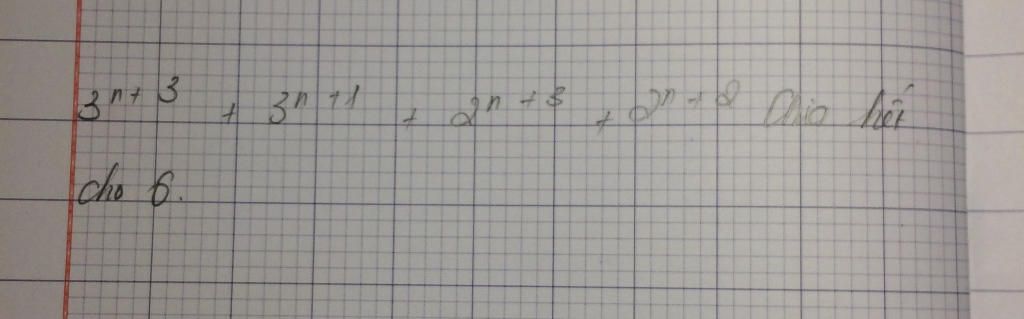 3^{n+3} + 3^{n+1} + 2^{n+3} + 2^{n+2} Chia hết
cho 6.